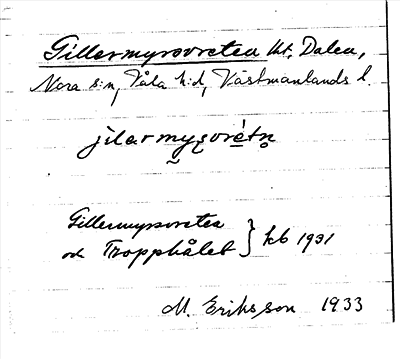 Gillermyrsvreten ht. Dalen,
Nora s:n, Våla h:d, Västmanlands l.
jilarmysvrétn
Gillermyrsvreten
och Tropphålet } kb 1931
M. Eriksson 1933